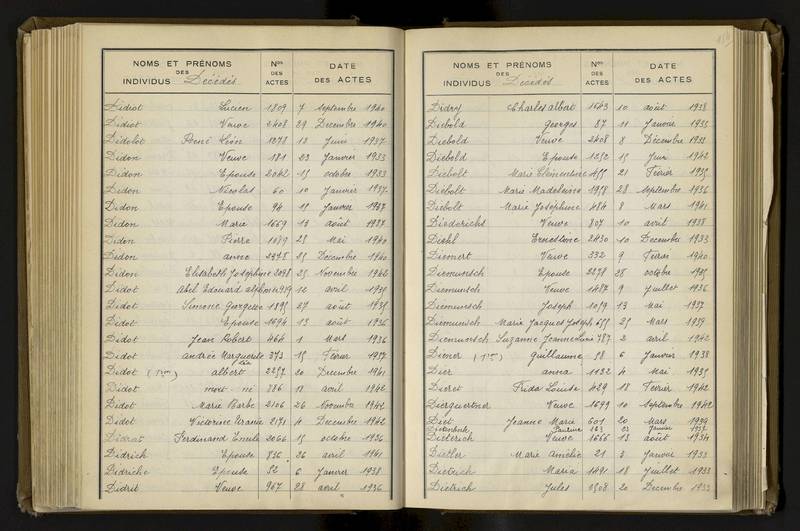 NOMS ET PRÉNOMS
DES
INDIVIDUS Décédés
Nos
DES
ACTES
DATE
DES ACTES
Didiot Lucien 1809 7 Septembre 1940
Didiot Veuve 2408 29 Décembre 1940
Didolot René Léon 1278 12 Juin 1937
Didon Veuve 181 23 Janvier 1933
Didon Epouse 2042 15 octobre 1933
Didon Nicolas 60 10 Janvier 1937
Didon Epouse 94 15 Janvier 1937
Didon Marie 1669 13 août 1937
Didon Pierre 1089 25 Mai 1940
Didon anne 15 Décembre 1940
Didon Elisabeth Joséphine 2098 25 Novembre 1942
Didot Abel Edouard alphonse 12 avril 1935
Didot Simone Georgette 1895 27 août 1935
Didot Epouse 1694 13 août 1936
Didot Jean Robert 464 1 Mars 1936
Didot andrée Marguerite 373 15 Février 1937
Didot albert 2257 20 Décembre 1941
Didot mort né 886 17 avril 1942
Didot Marie Barbe 2106 26 Novembre 1942
Didot Victorine Uranie 2171 4 Décembre 1942
Didrat Ferdinand Emile 2066 15 octobre 1936
Didrich Epouse 836 26 avril 1941
Didriche Epouse 52 6 Janvier 1938
Didrit Veuve 967 28 avril 1936
NOMS ET PRÉNOMS
DES
INDIVIDUS Décédés
Nos
DES
ACTES
DATE
DES ACTES
Didry Charles albert 1643 10 août 1938
Diebold Georges 87 11 Janvier 1935
Diebold Veuve 2408 8 Décembre 1933
Diebold Epouse 1252 15 Juin 1942
Diebolt Marie Clémentine 455 21 Février 1935
Diebolt Marie Madeleine 1958 28 Septembre 1936
Diebolt Marie Joséphine 484 8 Mars 1941
Diederichs Veuve 807 10 avril 1938
Diehl Ernestine 2430 10 Décembre 1933
Diemert Veuve 332 9 Février 1940
Diemunsch Epouse 2278 28 octobre 1935
Diemunsch Veuve 1487 9 Juillet 1936
Diemunsch Joseph 1059 13 Mai 1937
Diemunsch Marie Jacques Joseph 655 25 Mars 1939
Diemunsch Suzanne Jeanne 787 2 avril 1942
Diener Guillaume 58 6 Janvier 1938
Dier anna 1132 4 Mai 1935
Dieret Frida Louise 429 18 Février 1942
Veuve 1699 10 Septembre 1942
Diet Jeanne Marie 601 20 Mars 1939
Pauline 163 23 Janvier 1937
Dieterich Veuve 1666 13 août 1934
Dietler Marie amélie 21 3 Janvier 1933
Dietrich Maria 1491 18 Juillet 1933
Dietrich Jules 2508 20 Décembre 1933